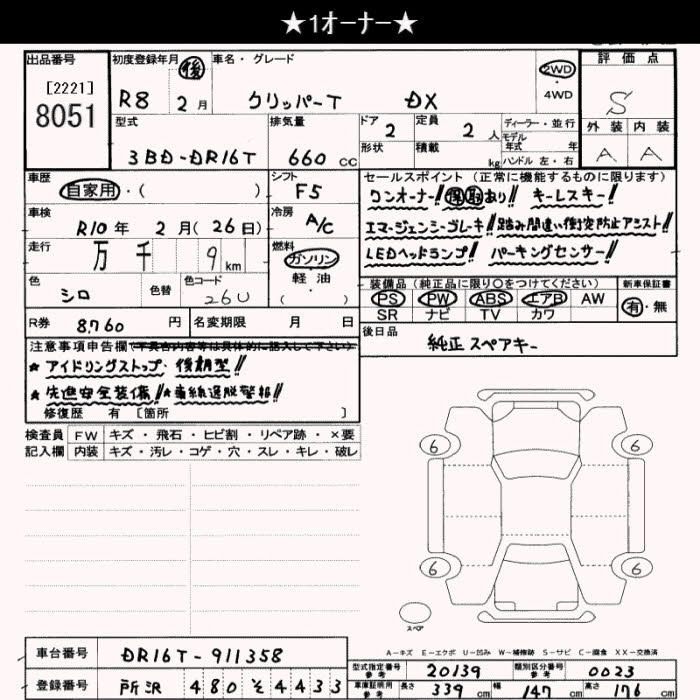 ★1オーナー★
出品番号
[2221]
8051
初度登録年月 後
R8 2月
車名・グレード
クリッパーT DX
2WD
・
4WD
評価点
S
外装 内装
A A
型式
3BD-DR16T
排気量
660 cc
ドア
2
定員
2 人
形状
積載
kg
ディーラー・並行
モデル年式 年
ハンドル 左・右
車歴
自家用・( )
シフト
F5
車検
R10年 2月(26日)
冷房
A/C
走行
万 千 9 km
燃料
ガソリン
・
軽油
( )
色
シロ
色替
色コード
26U
R券 8760 円
名変期限 月 日
セールスポイント(正常に機能するものに限ります)
ワンオーナー!! 保取あり!! キーレスキー!
エマージェンシーブレーキ!! 踏み間違い衝突防止アシスト!!
LEDヘッドランプ!! パーキングセンサー!!
装備品(純正品に限り○をつけてください)
PS PW ABS エアB AW
SR ナビ TV カワ
新車保証書
有・無
後日品
純正 スペアキー
注意事項申告欄(不具合内容等は具体的に記入して下さい)
★アイドリングストップ・後期型!!
★先進安全装備!! ★車線逸脱警報!!
修復歴 有 [箇所 ]
検査員記入欄
FW キズ・飛石・ヒビ割・リペア跡・×要
内装 キズ・汚レ・コゲ・穴・スレ・キレ・破レ
6 6
6 6
スペア
A-キズ E-エクボ U-凹み W-補修跡 S-サビ C-腐食 XX-交換済
車台番号 DR16T-911358
登録番号 所沢 480 を 4433
型式指定番号 参考 20139
類別区分番号 参考 0023
車庫証明用 参考 長さ 339 cm 幅 147 cm 高さ 176 cm